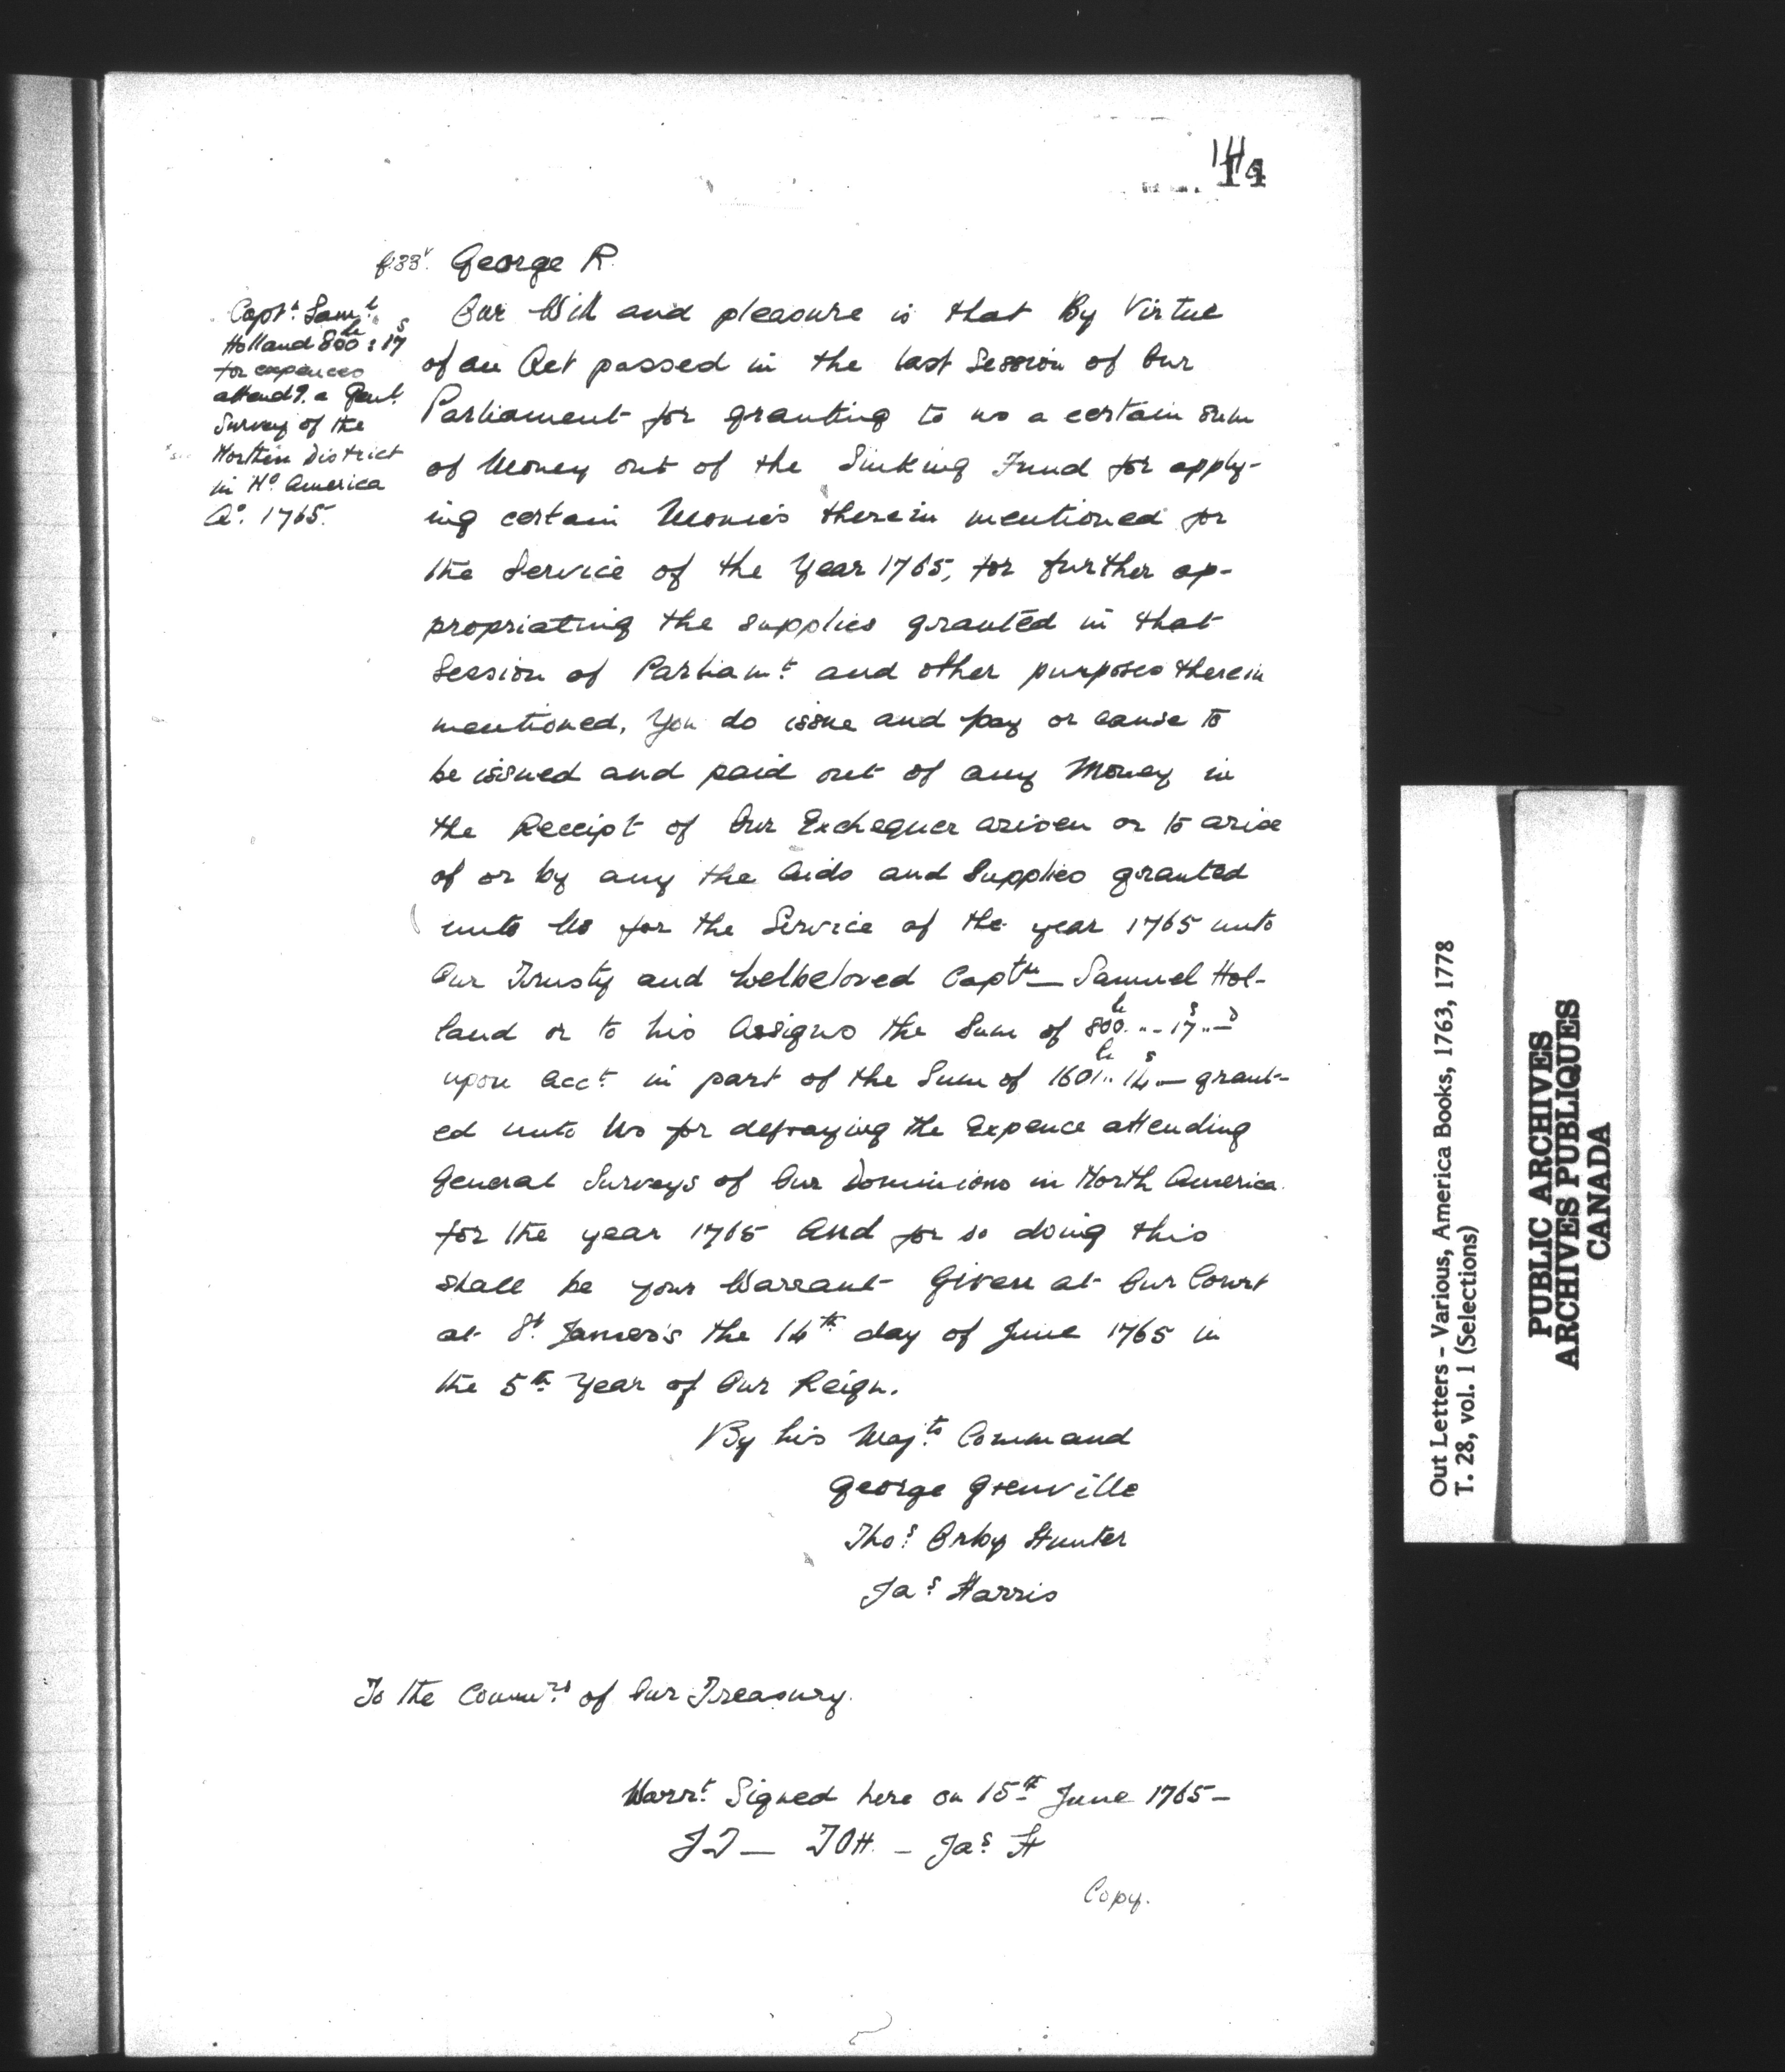 14
14
f.33v. George R.
Captn. Saml.
Holland 800li : 17s
for expences
attendg. a Genl.
Survey of the
Northn District
in No. America
Ao. 1765.
Our Will and pleasure is that By Virtue
of an Act passed in the last Session of Our
Parliament for granting to us a certain sum
of Money out of the Sinking Fund for apply-
ing certain Monies therein mentioned for
the Service of the Year 1765, for further ap-
propriating the supplies granted in that
Session of Parliamt. and other purposes therein
mentioned, You do issue and pay or cause to
be issued and paid out of any Money in
the Receipt of Our Exchequer arisen or to arise
of or by any the Aids and Supplies granted
unto Us for the Service of the year 1765 unto
Our Trusty and Welbeloved Captn — Samuel Hol-
land or to his Assigns the Sum of 800li .. 17s .. —D
upon Acct. in part of the Sum of 1601li .. 14s — grant-
ed unto Us for defraying the Expence attending
General Surveys of Our Dominions in North America
for the year 1765 And for so doing this
shall be your Warrant Given at Our Court
at St. James's the 14th day of June 1765 in
the 5th Year of Our Reign.
By his Majts. Command
George Grenville
Thos. Orby Hunter
Jas. Harris
To the Commrs. of Our Treasury.
Warrt. Signed here on 15th June 1765 —
JT — TOH. — Jas. H
Copy.
Out Letters - Various, America Books, 1763, 1778
T. 28, vol. 1 (Selections)
PUBLIC ARCHIVES
ARCHIVES PUBLIQUES
CANADA